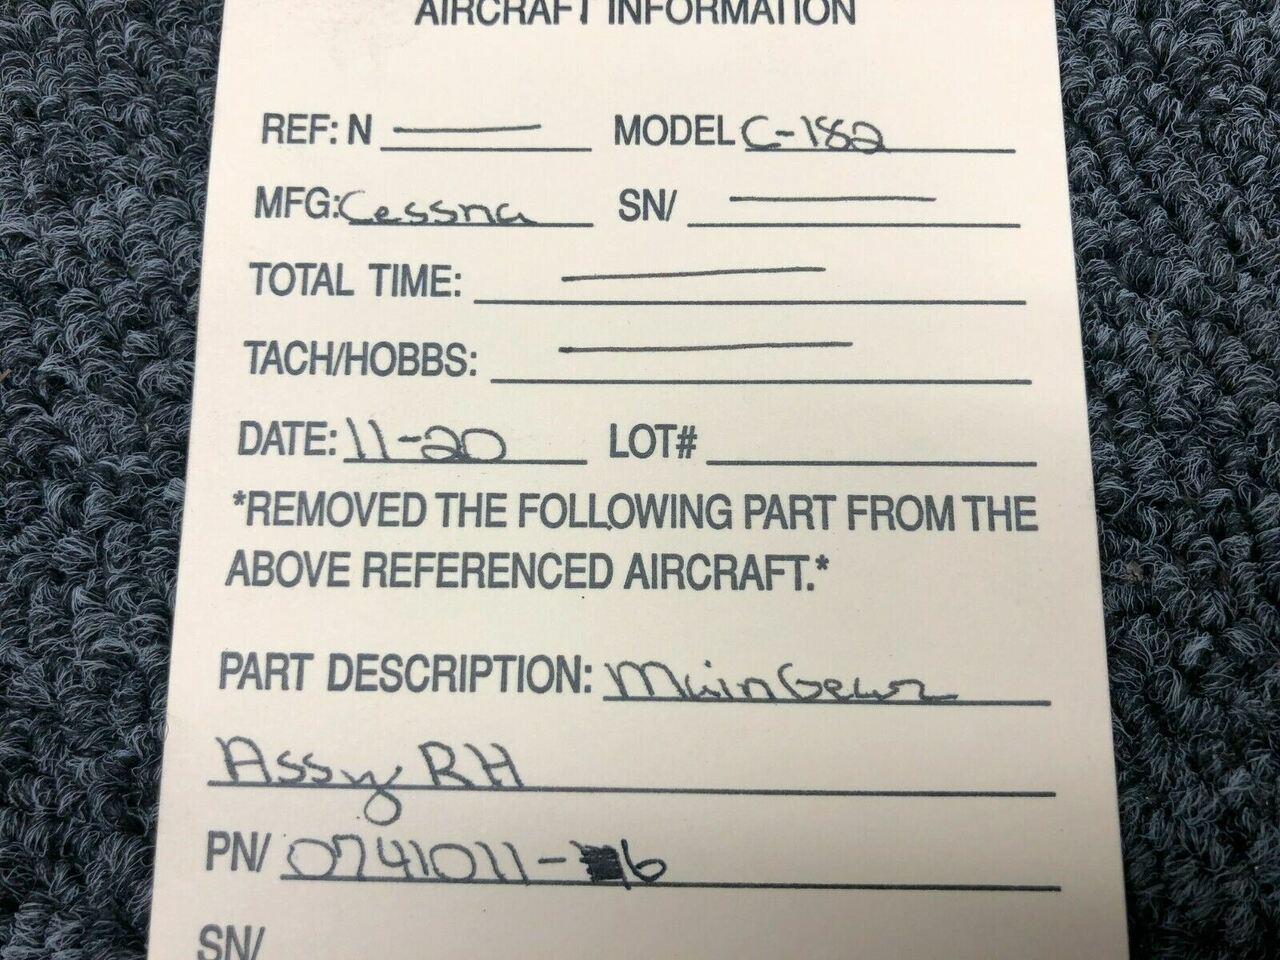 AIRCRAFT INFORMATION
REF: N MODEL C-182
MFG: Cessna SN/
TOTAL TIME:
TACH/HOBBS:
DATE: 11-20 LOT#
*REMOVED THE FOLLOWING PART FROM THE
ABOVE REFERENCED AIRCRAFT.*
PART DESCRIPTION: Main Gear
Assy RH
PN/ 0741011-6
SN/